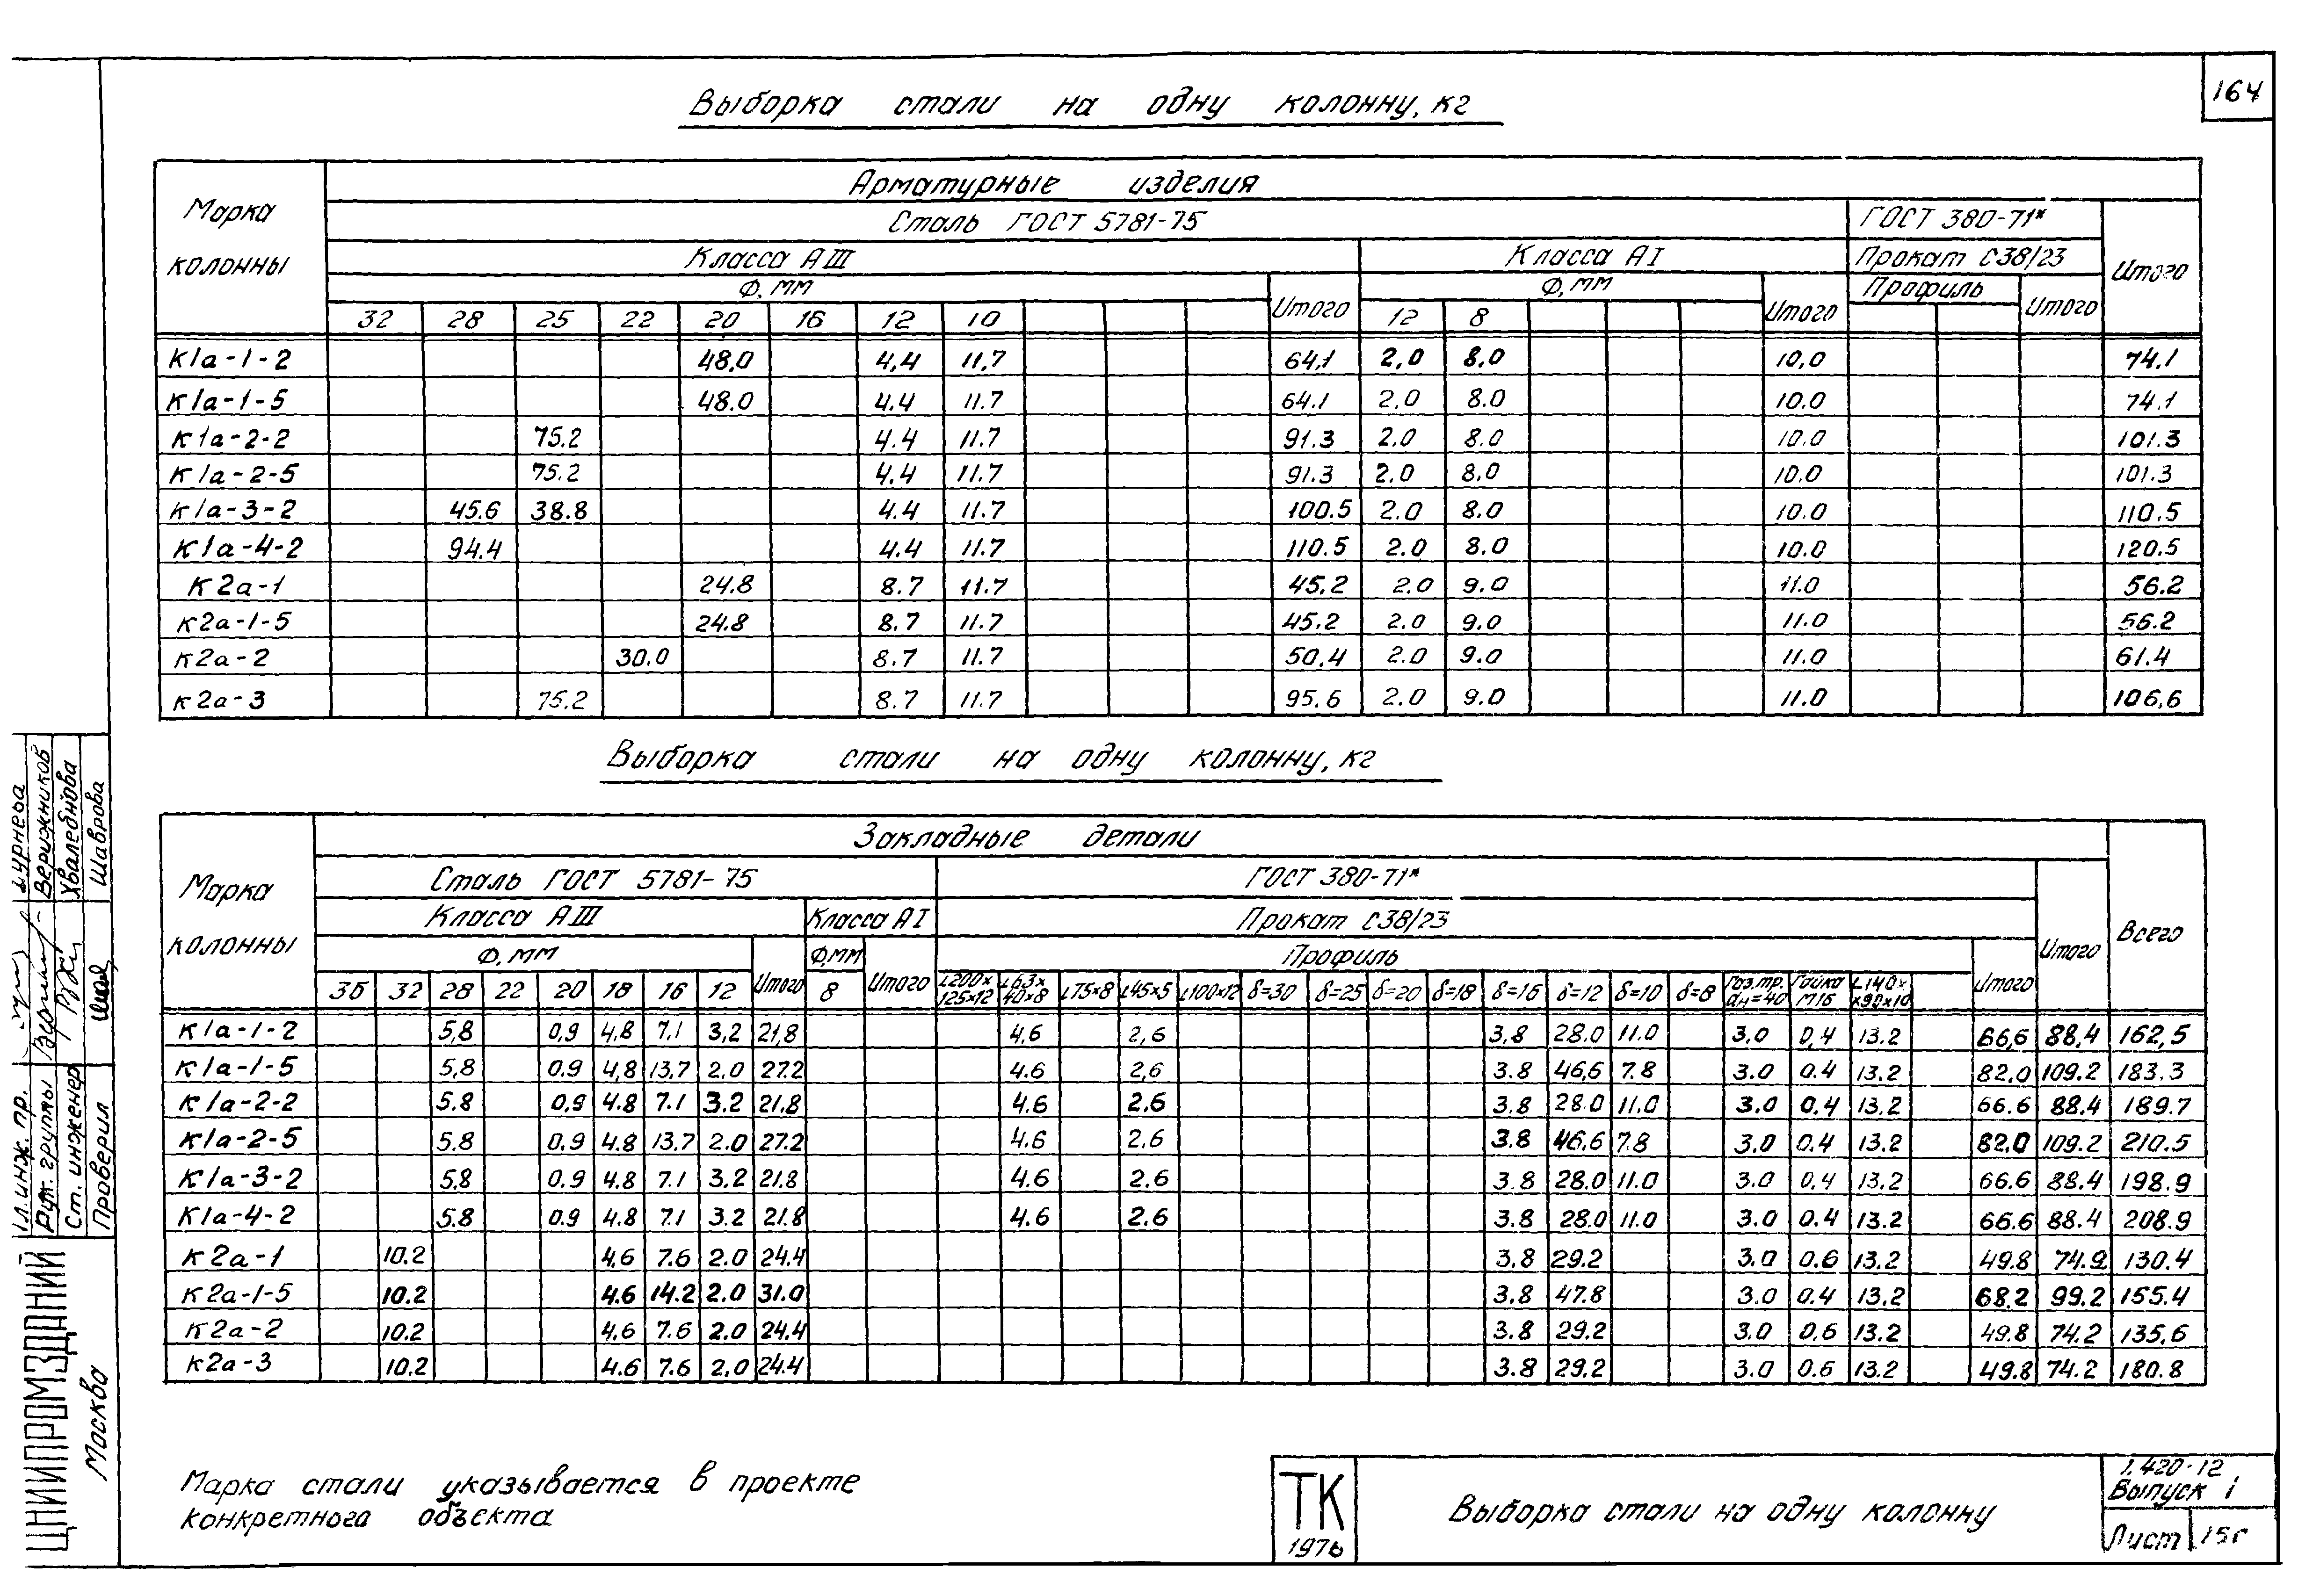 164
Выборка стали на одну колонну, кг
Марка колонны
Арматурные изделия
Итого
Сталь ГОСТ 5781-75
ГОСТ 380-71*
Класса АIII
Класса АI
Прокат С38/23
Ф, мм
Итого
Ф, мм
Итого
Профиль
Итого
32 28 25 22 20 16 12 10
12 8
К1а-1-2 48,0 4,4 11,7 64,1 2,0 8,0 10,0 74.1
К1а-1-5 48.0 4.4 11.7 64.1 2,0 8.0 10.0 74.1
К1а-2-2 75.2 4.4 11.7 91.3 2.0 8.0 10.0 101.3
К1а-2-5 75.2 4.4 11.7 91.3 2.0 8.0 10.0 101.3
К1а-3-2 45.6 38.8 4.4 11.7 100.5 2.0 8.0 10.0 110.5
К1а-4-2 94.4 4.4 11.7 110.5 2.0 8.0 10.0 120.5
К2а-1 24.8 8.7 11.7 45.2 2.0 9.0 11.0 56.2
К2а-1-5 24.8 8.7 11.7 45.2 2.0 9.0 11.0 56.2
К2а-2 30.0 8.7 11.7 50.4 2.0 9.0 11.0 61.4
К2а-3 75.2 8.7 11.7 95.6 2.0 9.0 11.0 106,6
Выборка стали на одну колонну, кг
Марка колонны
Закладные детали
Всего
Сталь ГОСТ 5781-75
ГОСТ 380-71*
Итого
Класса АIII
Класса АI
Прокат С38/23
Ф, мм
Итого
Ф,мм
Итого
Профиль
Итого
36 32 28 22 20 18 16 12
8
L200×125×12 L63×40×8 L75×8 L45×5 L100×12 δ=30 δ=25 δ=20 δ=18 δ=16 δ=12 δ=10 δ=8 Газ.тр. dн=40 Гайка М16 L140××90×10
К1а-1-2 5,8 0,9 4,8 7,1 3,2 21,8 4,6 2,6 3,8 28.0 11.0 3.0 0,4 13.2 66,6 88,4 162,5
К1а-1-5 5,8 0.9 4,8 13,7 2,0 27.2 4.6 2,6 3.8 46,6 7.8 3.0 0.4 13.2 82,0 109.2 183,3
К1а-2-2 5.8 0,9 4.8 7.1 3.2 21.8 4.6 2.6 3.8 28.0 11.0 3.0 0.4 13.2 66.6 88.4 189.7
К1а-2-5 5.8 0.9 4.8 13,7 2.0 27.2 4.6 2.6 3.8 46,6 7.8 3.0 0.4 13.2 82,0 109.2 210.5
К1а-3-2 5.8 0.9 4.8 7.1 3.2 21.8 4.6 2.6 3.8 28.0 11.0 3.0 0,4 13.2 66.6 88.4 198.9
К1а-4-2 5.8 0.9 4.8 7.1 3.2 21.8 4.6 2.6 3.8 28.0 11.0 3.0 0.4 13.2 66.6 88.4 208.9
К2а-1 10.2 4,6 7.6 2.0 24.4 3.8 29.2 3.0 0.6 13.2 49.8 74.2 130.4
К2а-1-5 10.2 4.6 14.2 2.0 31.0 3.8 47.8 3.0 0.4 13.2 68.2 99.2 155.4
К2а-2 10.2 4,6 7.6 2.0 24.4 3.8 29.2 3.0 0,6 13.2 49.8 74.2 135,6
К2а-3 10.2 4.6 7.6 2,0 24.4 3.8 29.2 3.0 0.6 13.2 49.8 74.2 180.8
Марка стали указывается в проекте
конкретного объекта
ТК
1976
Выборка стали на одну колонну
1.420-12
Выпуск 1
Лист 15г
Гл.инж. пр.
Рук. группы Верижников
Ст. инженер Хваленова
Проверил Шаврова
ЦНИИПРОМЗДАНИЙ
Москва